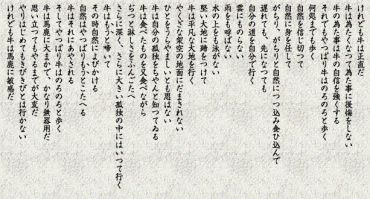 けれども牛は正直だ
牛は為たくなつて為た事に後悔をしない
牛の為た事は牛の自信を強くする
それでもやつぱり牛はのろのろと歩く
何処までも歩く
自然を信じ切つて
自然に身を任して
がちり、がちりと自然につつ込み食ひ込んで
遅れても、先になつても
自分の道を自分で行く
雲にものらない
雨をも呼ばない
水の上をも泳がない
堅い大地に蹄をつけて
牛は平凡な大地を行く
やくざな架空の地面にだまされない
ひとをうらやましいとも思はない
牛は自分の孤独をちやんと知つてゐる
牛は食べたものを又食べながら
ぢつと淋しさをふんごたへ
さらに深く、さらに大きい孤独の中にはいつて行く
牛はもうと啼いて
その時自然によびかける
自然はやつぱりもうとこたへる
牛はそれにあやされる
そしてやつぱり牛はのろのろと歩く
牛は馬鹿に大まかで、かなり無器用だ
思ひ立つてもやるまでが大変だ
やりはじめてもきびきびとは行かない
けれども牛は馬鹿に敏感だ